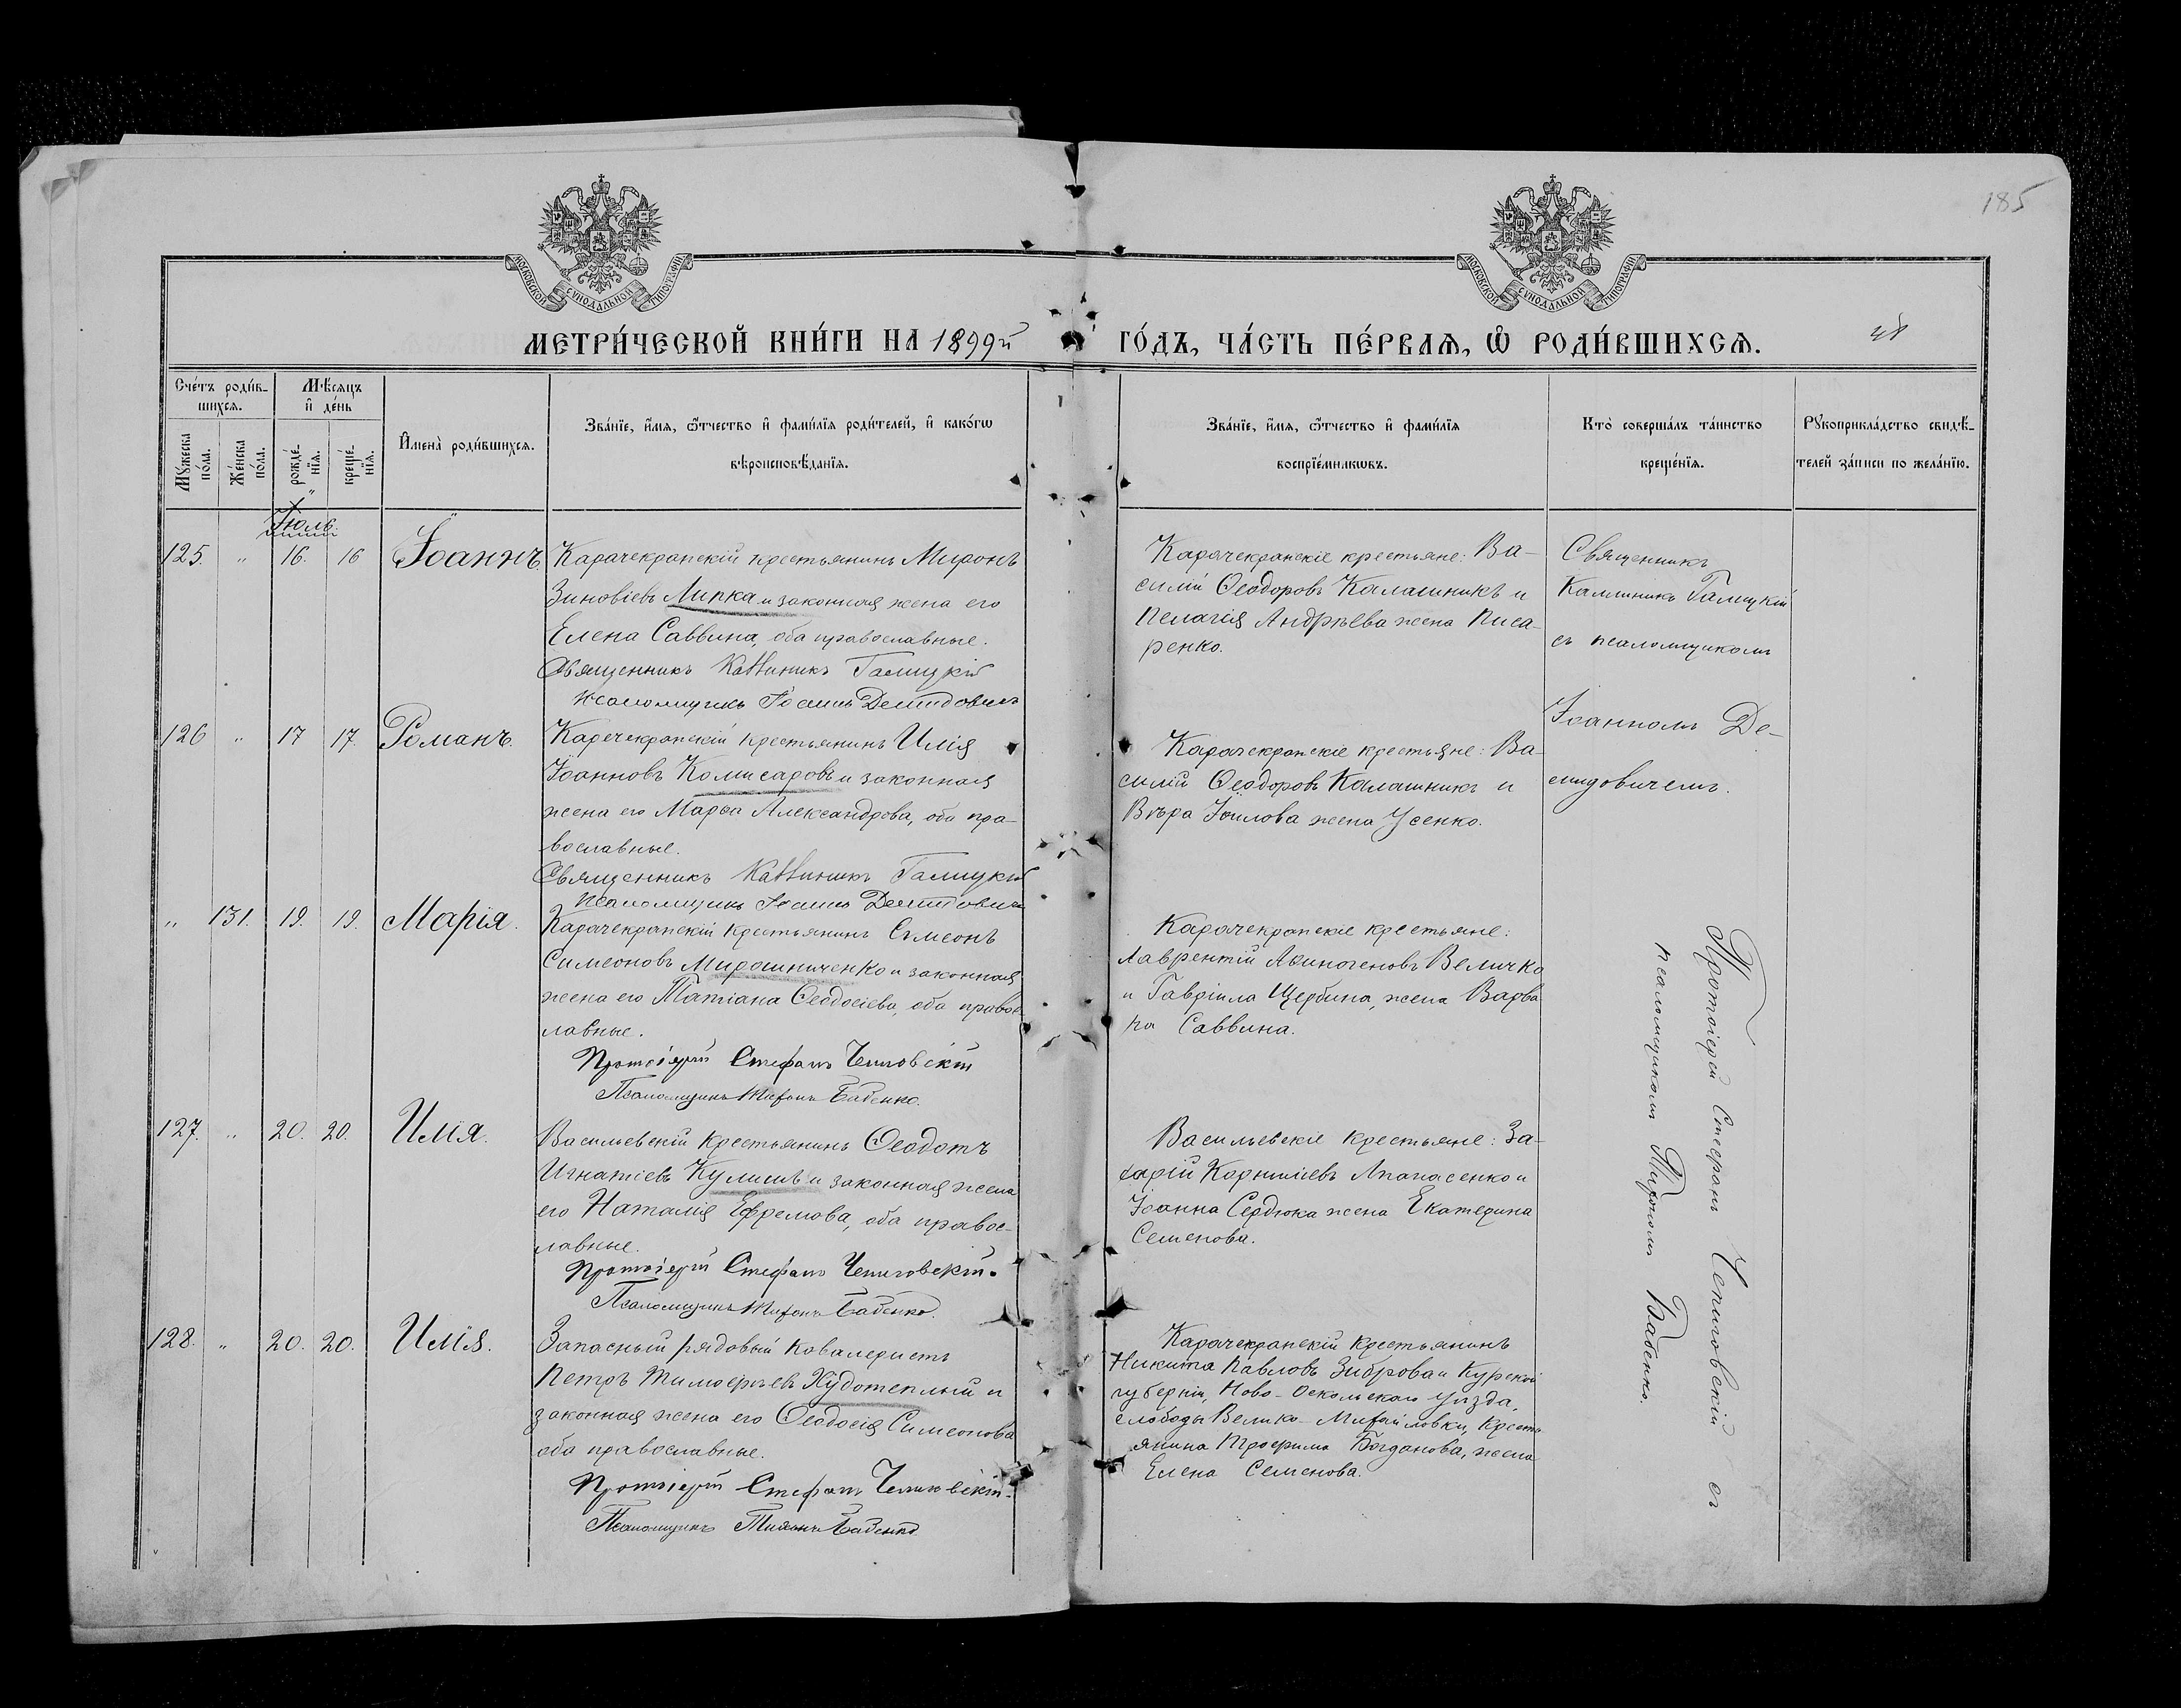 185
МОСКОВСКОЙ СѴНОДАЛЬНОЙ ТИПОГРАФІИ
МОСКОВСКОЙ СѴНОДАЛЬНОЙ ТИПОГРАФІИ
МЕТРИ́ЧЕСКОЙ КНИ́ГИ НА 1899й ГО́ДЪ, ЧА́СТЬ ПЕ́РВАЯ, Ѡ РОДИ́ВШИХСѦ.
Сче́тъ роди́в-
шихсѧ.
Мѣ́сѧцъ
и де́нь
Мꙋ́жеска
по́ла.
Же́нска
по́ла.
рожде́-
нїѧ.
креще́-
нїѧ.
Имена̀ роди́вшихсѧ.
Зва́нїе, и́мѧ, ѻ́тчество и фами́лїѧ роди́телей, и како́гѡ
вѣроисповѣ́данїѧ.
Зва́нїе, и́мѧ, ѻ́тчество и фами́лїѧ
воспрїе́мникѡвъ.
Кто̀ соверша́лъ та́инство
креще́нїѧ.
Рꙋкоприкла́дство свидѣ́-
телей за́писи по жела́нїю.
Іюль.
125. " 16. 16 Іоаннъ.
Карачекракскій крестьянинъ Миронъ
Зиновіевъ Липка и законная жена его
Елена Саввина, оба православные.
Священникъ Каллиникъ Галицкій
Псаломщикъ Іоаннъ Демидовичъ
Карачекракскіе крестьяне: Ва-
силій Ѳеодоровъ Калашникъ и
Пелагія Андреѣва жена Писа-
ренко.
Священникъ
Каллиникъ Галицкій
съ псаломщикомъ
Іоанномъ Де-
мидовичемъ.
126 " 17 17. Романъ.
Карачекракскій крестьянинъ Илія
Іоанновъ Комисаровъ и законная
жена его Марѳа Александрова, оба пра-
вославные.
Священникъ Каллиникъ Галицкій
Псаломщикъ Іоаннъ Демидовичъ
Карачекракскіе крестьяне: Ва-
силій Ѳеодоровъ Калашникъ и
Вѣра Іоилова жена Усенко.
" 131. 19. 19. Марія.
Карачекракскій крестьянинъ Симеонъ
Симеоновъ Мирошниченко и законная
жена его Татіана Ѳеодосіева, оба правос-
лавные.
Протоіерей Стефанъ Чепиговскій
Псаломщикъ Тихонъ Бабенко.
Карачекракскіе крестьяне:
Лаврентій Аѳиногеновъ Величко
и Гавріила Щербина, жена Варва-
ра Саввина.
Протоіерей Стефанъ Чепиговскій съ
псаломщикомъ Тихономъ Бабенко.
127. " 20. 20. Илія.
Васильевскій крестьянинъ Ѳеодотъ
Игнатіевъ Кулишъ и законная жена
его Наталія Ефремова, оба правос-
лавные.
Протоіерей Стефанъ Чепиговскій.
Псаломщикъ Тихонъ Бабенко.
Васильевскіе крестьяне: За-
харій Корниліевъ Апанасенко и
Іоанна Сердюка жена Екатерина
Семенова.
128. " 20. 20. Илія.
Запасный рядовый кавалеристъ
Петръ Тимоѳеевъ Худотеплый и
законная жена его Ѳеодосія Симеонова
оба православные.
Протоіерей Стефанъ Чепиговскій.
Псаломщикъ Тихонъ Бабенко
Карачекракскій крестьянинъ
Никита Павловъ Зиброва и Курской
губерніи, Ново-Оскольскаго уѣзда,
слободы Велико-Михайловки, кресть-
янина Трофима Богданова, жена
Елена Семенова.